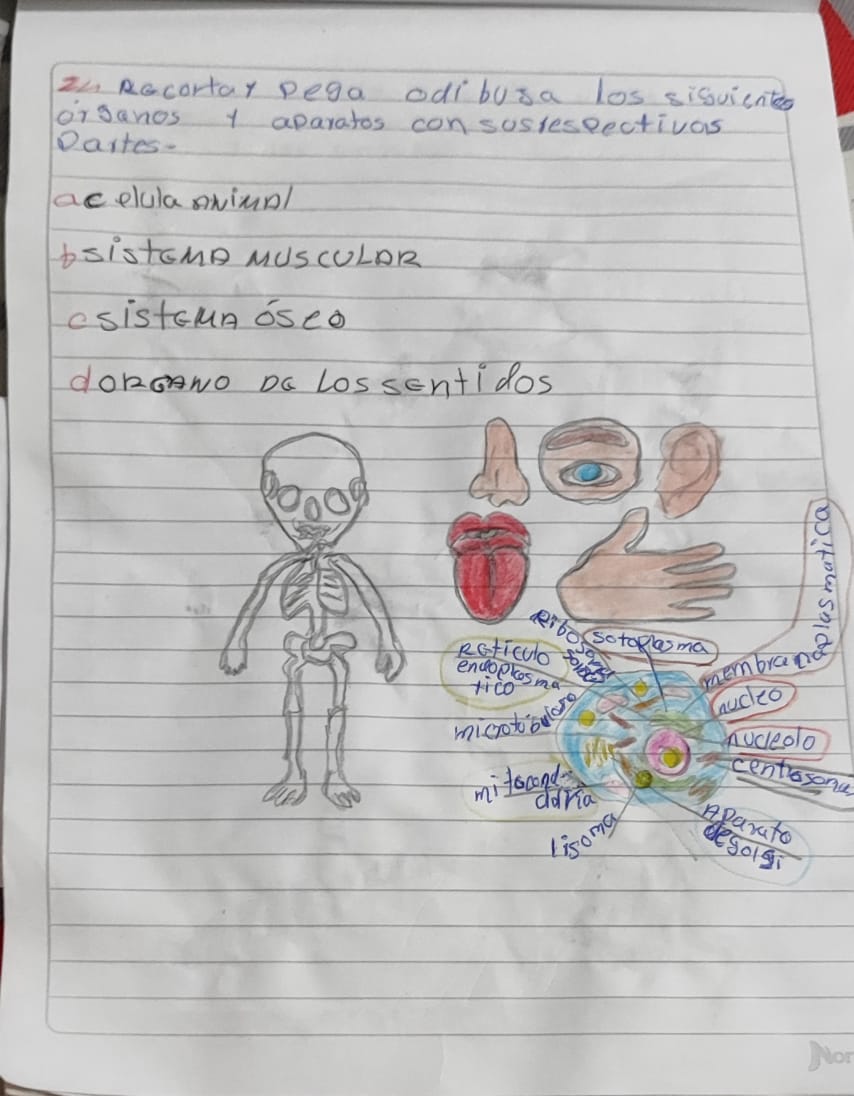 2. Recortar y pega o dibuja los siguientes
órganos y aparatos con sus respectivas
Partes-
a celula ANIMAl
b sistEMA MUSCULAR
c sistEMA ÓSEO
d ORGANO DE LOS SENtidos
Ribosoma
sotoplasma
Retículo
endoplasma
tico
membrana plasmatica
nucleo
microtúbuloro
nucleolo
centrosoma
mitocond-
dria
Aparato
de golgi
lisoma
Nor